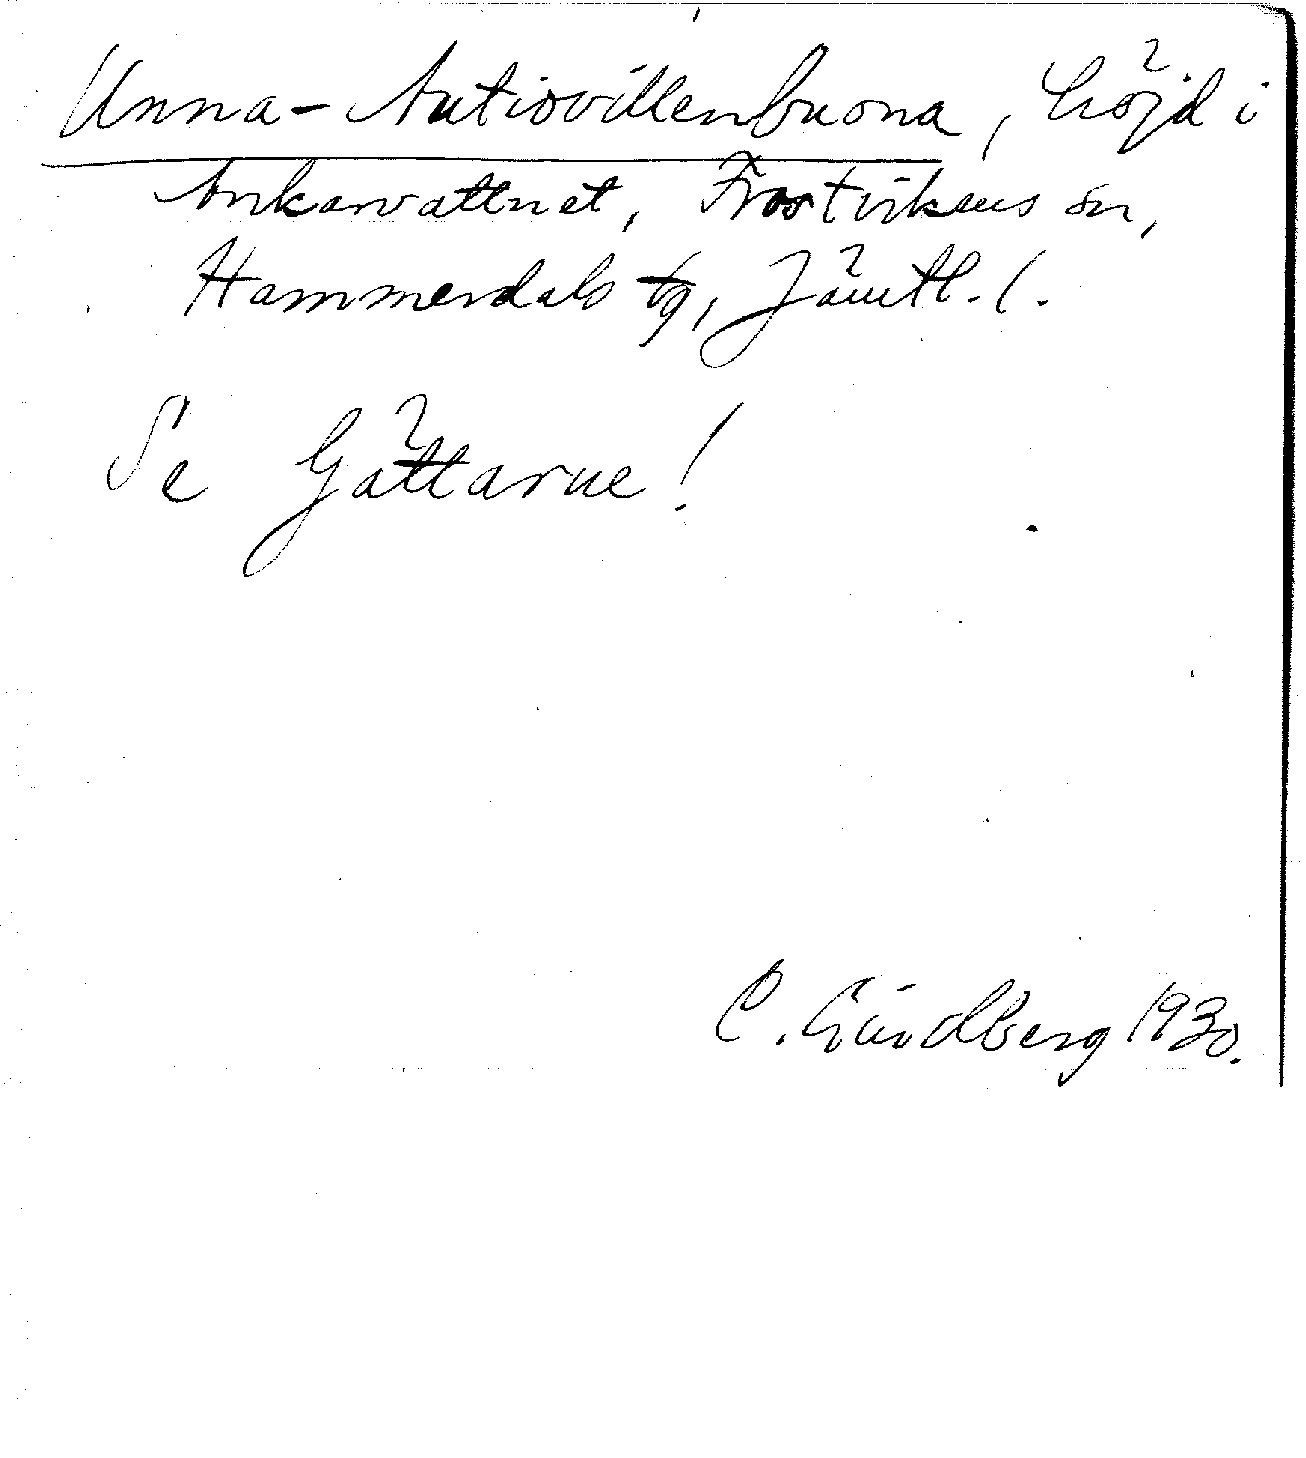 Unna-Autiovillenbuona, höjd i
Ankarvattnet, Frostvikens sn,
Hammerdals tg, Jämtl. l.
Se Gåttarne!
C. Lindberg 1930.